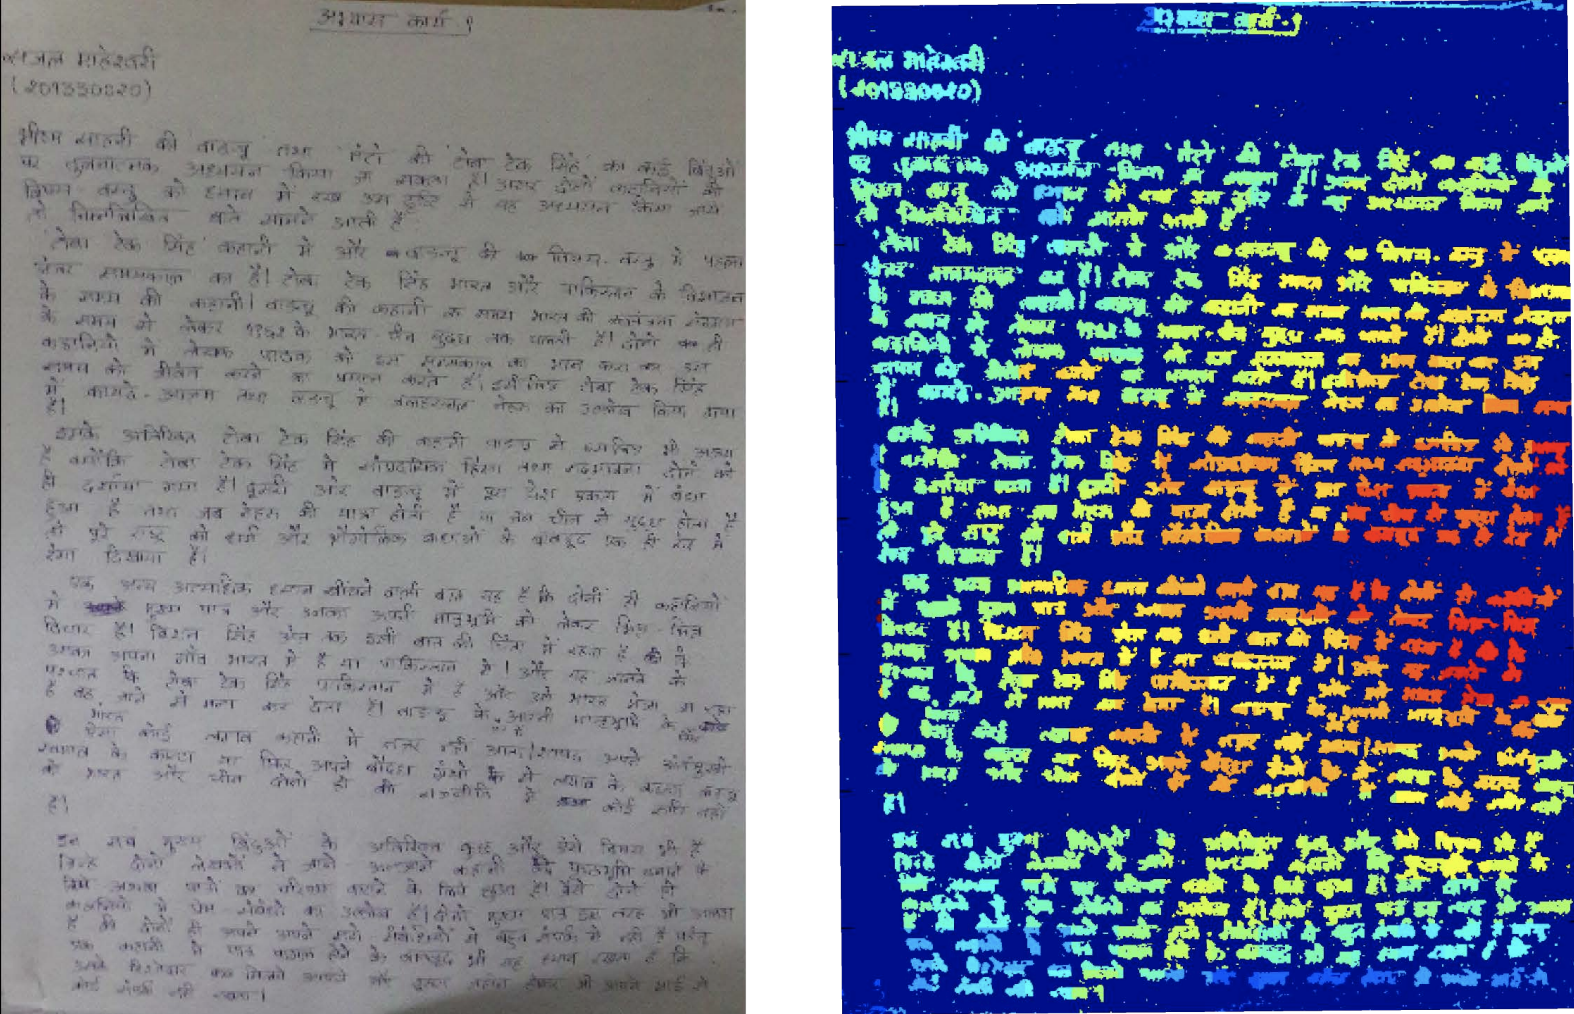 अभ्यास कार्य १
माहेश्वरी
(201330020)
भीष्म साहनी की 'वाङचू' तथा मंटो की 'टोबा टेक सिंह' का कई बिंदुओं
पर तुलनात्मक अध्ययन किया जा सकता है। अगर दोनों कहानियों की
विषय वस्तु को ध्यान में रख इस दृष्टि से यह अध्ययन किया जाये
तो निम्नलिखित बातें सामने आती हैं
'टोबा टेक सिंह' कहानी में और वाङचू की विषय-वस्तु में पहला
अंतर समयकाल का है। टोबा टेक सिंह भारत और पाकिस्तान के विभाजन
के समय की कहानी। वाङचू की कहानी समय भारत की स्वतंत्रता
के समय से लेकर १९६२ के भारत-चीन युद्ध तक चलती है। दोनों ही
कहानियों में लेखक पाठक को इस समयकाल का करा कर इस
समय को जीवंत करने का प्रयास करते हैं। इसीलिए टोबा टेक सिंह
में कायदे-आज़म तथा वाङचू में जवाहरलाल नेहरू का उल्लेख किया गया
है।
इसके अतिरिक्त टोबा टेक सिंह की कहानी वाङचू से भी
है क्योंकि टोबा टेक सिंह में सांप्रदायिक हिंसा तथा सद्भावना दोनों को
ही दर्शाया गया है। दूसरी ओर वाङचू में पूरा देश एकता में बंधा
हुआ है तथा जब नेहरू की यात्रा होती है या जब चीन से युद्ध होता है
तो पूरे राष्ट्र को धर्म और भौगोलिक बाधाओं के बावजूद एक ही रंग में
रंगा दिखाया है।
एक अन्य अत्याधिक ध्यान खींचने वाली बात यह है कि दोनों ही कहानियों
में मुख्य पात्र और उनका अपनी मातृभूमि को लेकर भिन्न-भिन्न
विचार है। बिशन सिंह अंत तक इसी बात की चिंता में रहता है कि
उसका अपना गाँव भारत में है या पाकिस्तान में। और यह जानने के
पश्चात कि टोबा टेक सिंह पाकिस्तान में है और उसे भारत भेजा जा रहा
है वह जाने से मना कर देता है। वाङचू के अपनी मातृभूमि के लिए
ऐसा कोई लगाव कहानी में नज़र नहीं आता। शायद अपने अंतर्मुखी
स्वभाव के कारण या फिर अपने बौद्ध ग्रंथों से लगाव के कारण वाङचू
को भारत और चीन दोनों ही की राजनीति में कोई रुचि नहीं
है।
इन सब मुख्य बिंदुओं के अतिरिक्त कुछ और ऐसे विषय भी हैं
जिन्हें दोनों लेखकों ने अपने कहानी की पृष्ठभूमि बनाने के
लिये अथवा पात्रों का परिचय कराने के लिये छुआ है। जैसे दोनों ही
कहानियों में प्रेम संबंधों का उल्लेख है। दोनों मुख्य पात्र इस तरह भी
हैं कि दोनों ही अपने अपने सगे संबंधियों से बहुत संपर्क में नहीं हैं परंतु
एक कहानी में पात्र पागल होने के बावजूद भी यह ध्यान रखता है कि
उसके रिश्तेदार कब मिलने आयेंगे और दूसरा होकर भी अपने भाई से
कोई संपर्क नहीं रखता।